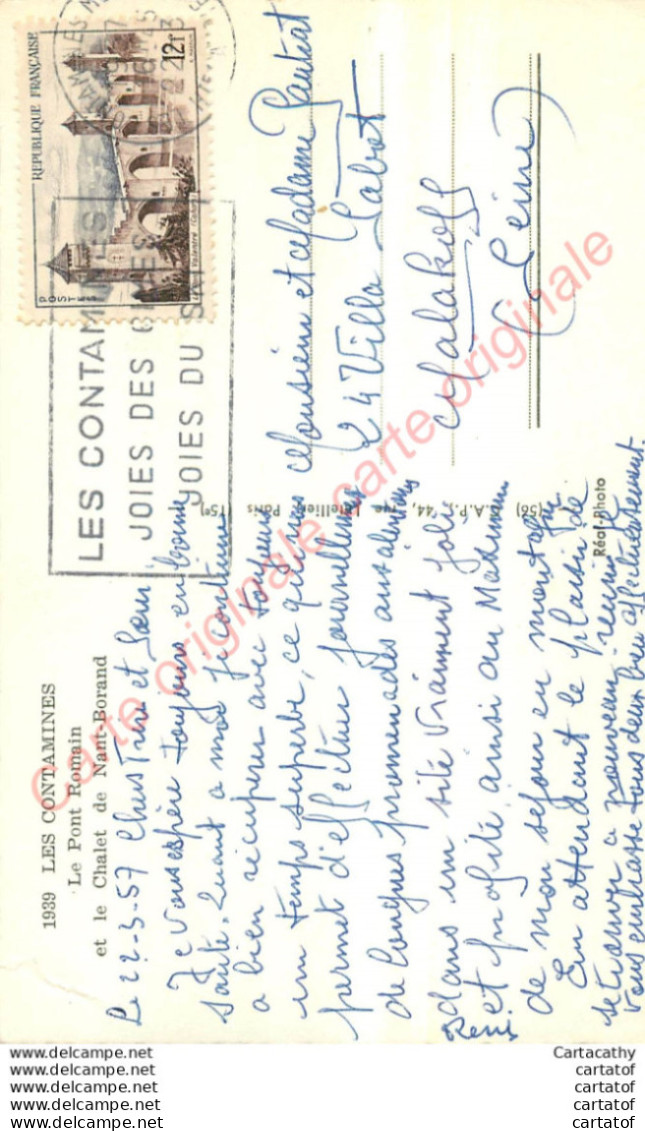 1939 LES CONTAMINES
Le Pont Romain
et le Chalet de Nant-Borand
Le 22-3-57 Chers Frère et Sœur
Je vous espère toujours en bonne
santé. Quant a moi je continue
a bien récupérer avec toujours
un temps superbe, ce qui me
permet d'effectuer journellement
de longues promenades aux alentours
dans un site vraiment joli
et profite ainsi au Maximum
de mon séjour en montagne
En attendant le plaisir de
se trouver a nouveau réunis
vous embrasse tous deux bien affectueusement.
René
LES CONTAMINES
JOIES DES
JOIES DU SKI
REPUBLIQUE FRANÇAISE
12F
POSTES
Valentré - Cahors
Monsieur et Madame Gautrat
24 Villa Sabot
Malakoff
(Seine)
(56) C.A.P., 44, rue Letellier, Paris (15e)
Réal-Photo
Carte originale carte originale
www.delcampe.net
www.delcampe.net
www.delcampe.net
www.delcampe.net
www.delcampe.net
Cartacathy
cartatof
cartatof
cartatof
cartatof